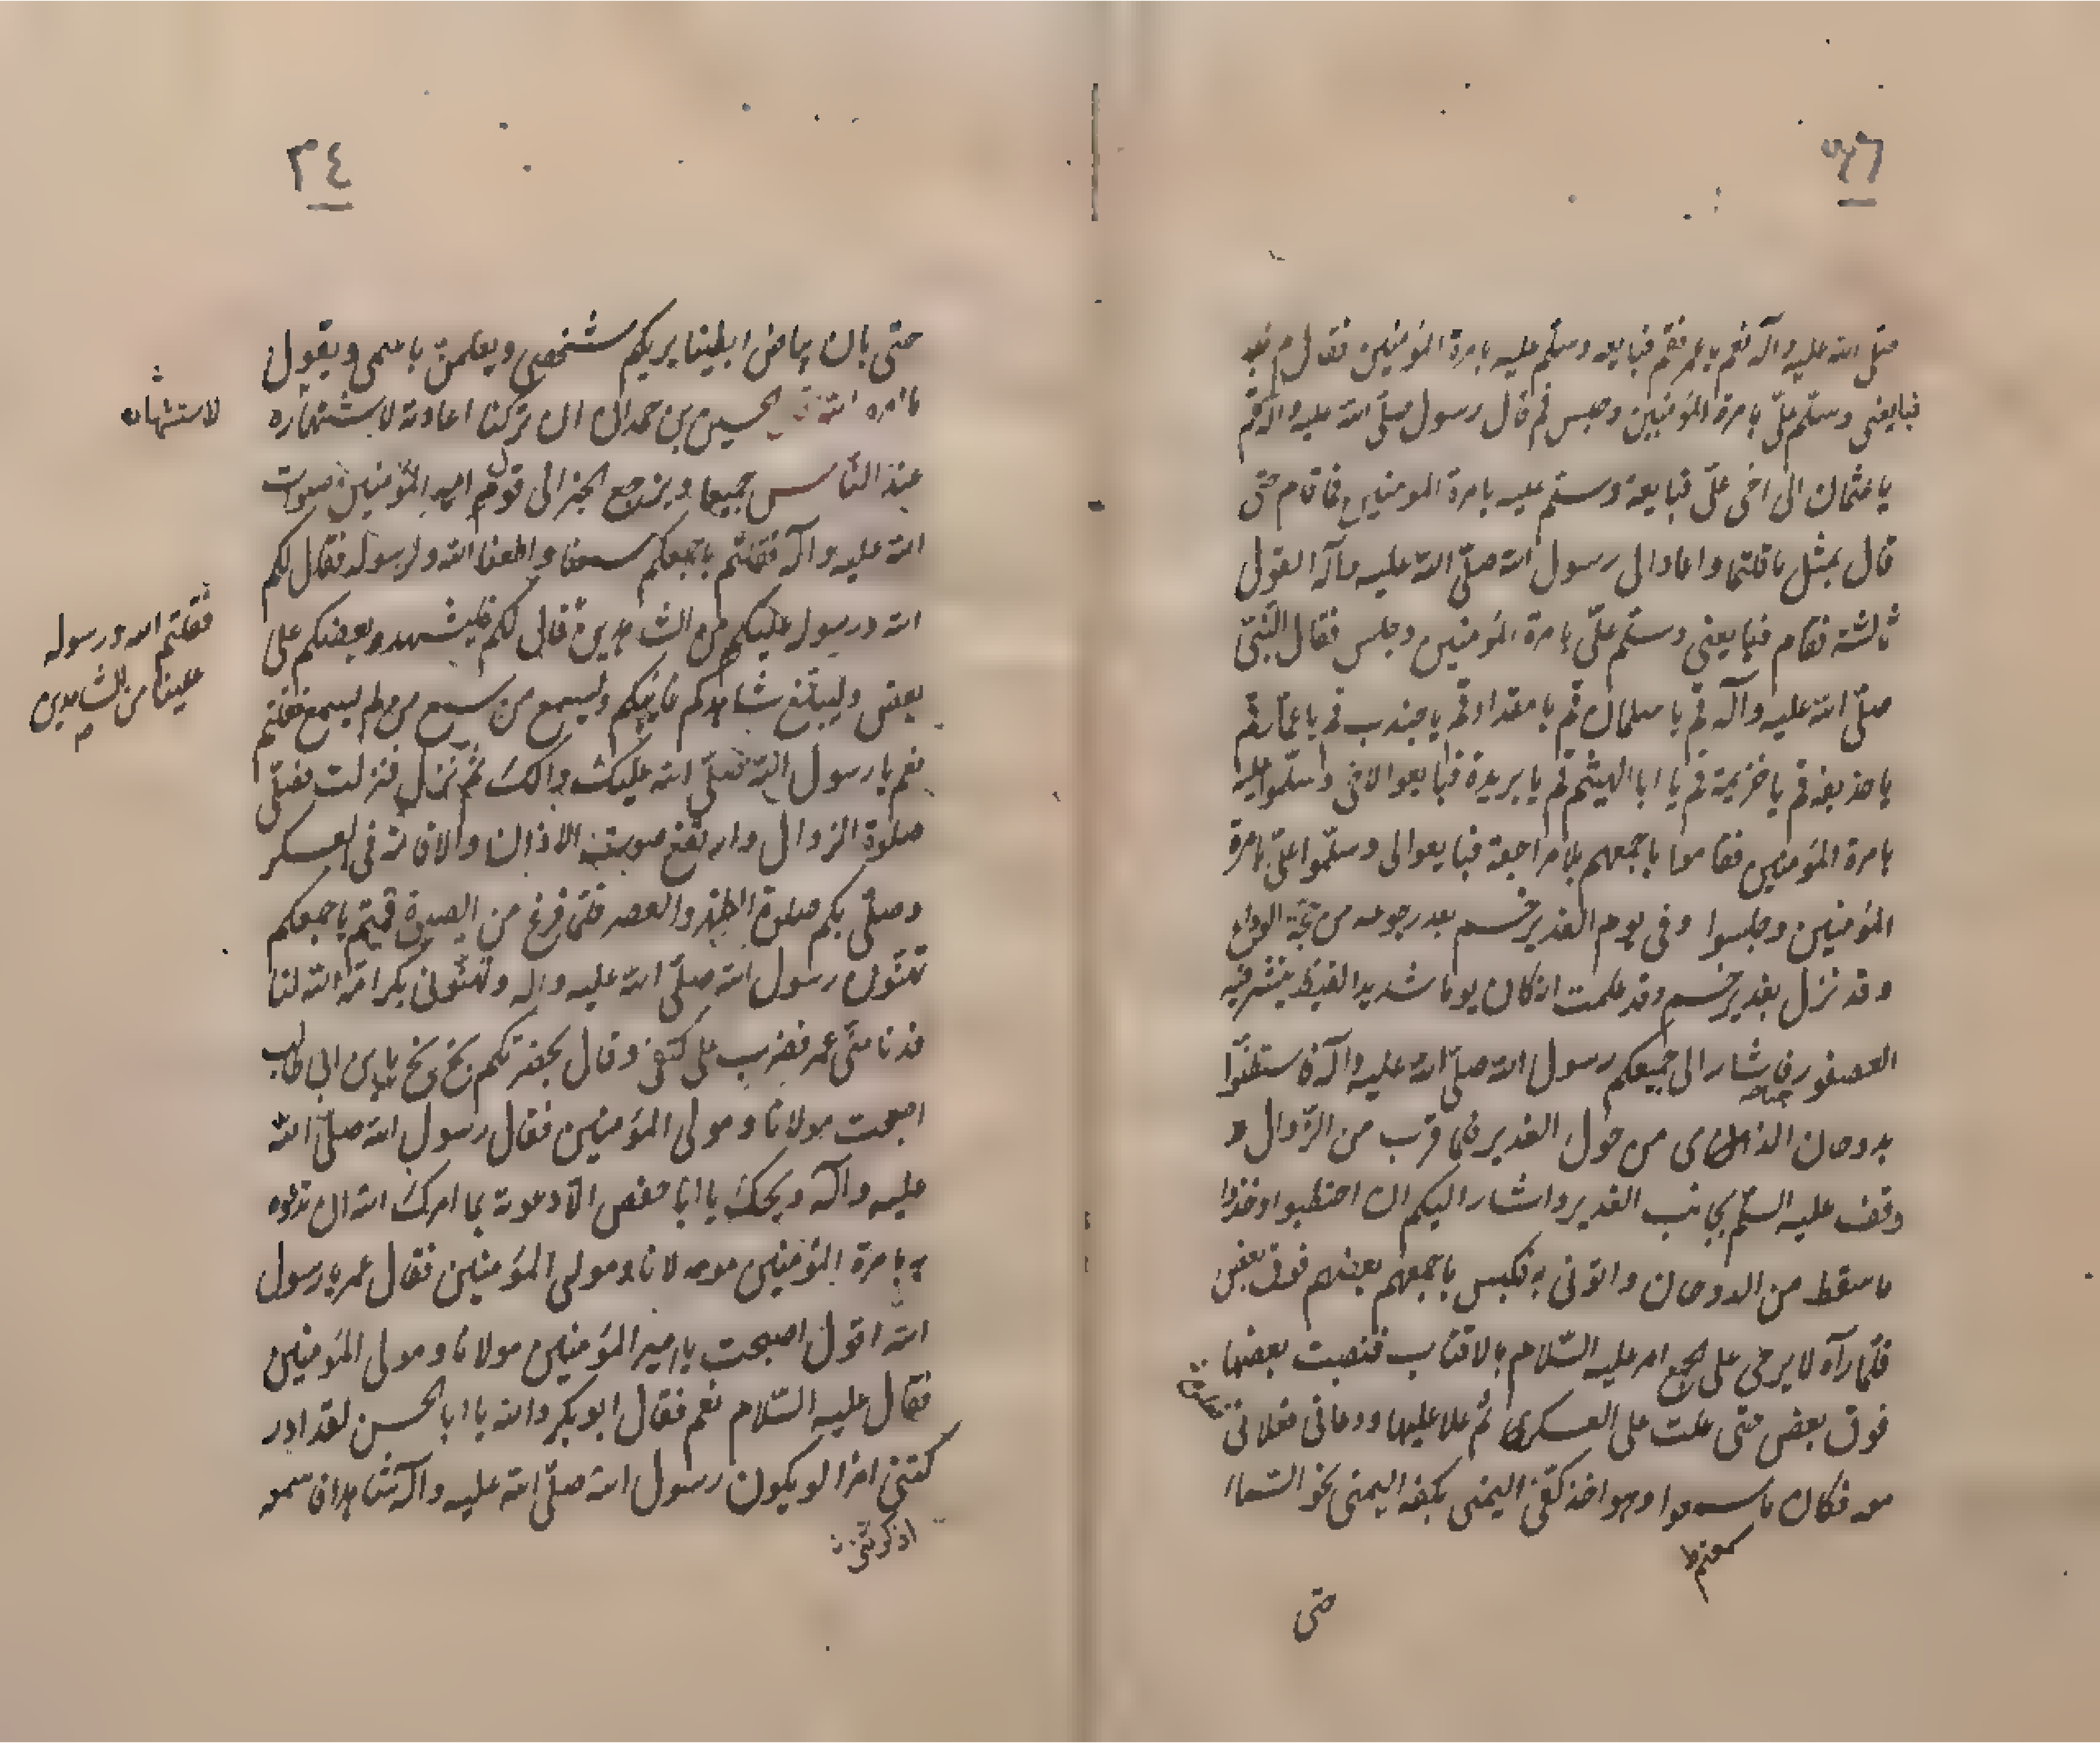 ٣٤
صلى الله عليه وآله نعم يا عمر فقم فبايعه وسلم عليه بامرة المؤمنين فقال
فبايعنى وسلم علىّ بامرة المؤمنين وجلس ثم قال رسول صلى الله عليه وآله قم
يا عثمان الى اخى علىّ فبايعه وسلم عليه بامرة المومنين فما قام حتى
قال بمثل ما قلتما واعادا لى رسول الله صلّى الله عليه وآله القول
ثالثة فقام فبايعنى وسلم علىّ بامرة المؤمنين وجلس فقال النّبىّ
صلّى الله عليه وآله قم يا سلمان قم يا مقداد قم يا جندب قم يا عمّار قم
يا حذيفة قم يا خزيمة قم يا ابا الهيثم قم يا بريدة فبايعوا لاخى وسلّموا عليه
بامرة المؤمنين فقاموا باجمعهم بلا مراجعة فبايعوا لى وسلّموا علىّ بامرة
المؤمنين وجلسوا وفى يوم الغدير خم بعد رجوعه من حجّة الوداع
وقد نزل بغدير خم وقد علمت انه كان يوما شديد القيظ ينشر فيه
العصفور فاشار الى جميعكم رسول الله صلّى الله عليه وآله فاستظلّوا
جناحه
بدوحان من حول الغدير فلما قرب من الزّوال و
وقف عليه السلم بجانب الغدير واشار اليكم ان احتطبوا وخذوا
ما سقط من الدوحان واتونى به فكبس باجمعهم بعضهم فوق بعض
فلمّا رآه لا يرخى على الجمع امر عليه السّلام بالاقتاب فنصبت بعضها
فوق بعض حتى علت على العسكر ثم علا عليها ودعانى فعلانى
معه فكان ما سمعوا وهو اخذ كفّى اليمنى بكفه اليمنى نحو السّماء
سمعتم ظ
حتى
٣٤
حتى بان بياض ابطينا يريكم شخصى ويعلمنّ باسمى ويقول
ما امره الله قال الحسين بن حمدان ان تركنا اعادته لاشتهاره
لاستشهاده
عند النّاس جميعا ويرجع الخبر الى قول امير المؤمنين صلوات
الله عليه وآله فقلتم باجمعكم سمعنا واطعنا الله ولرسوله فقال لكم
الله ورسول عليكم من الشاهدين قال لكم فليشهد وبعضكم على
فقلتم الله ورسوله
علينا من الشاهدين
بعض وليبلّغ شاهدكم غايبكم وليسمع من سمع من لم يسمع فقلتم
نعم يا رسول الله صلّى الله عليك وآلك ثمّ نزل فنزلت فصلّى
صلوة الزوال وارتفع صوت الاذان والاقامة فى العسكر
وصلّى بكم صلوة الظهر والعصر فلمّا فرغ من الصلوة قمتم باجمعكم
تهنّون رسول الله صلّى الله عليه واله وتهنّونى بكرامة الله لنا
فدنا منّى عمر فضرب على كتفى وقال بحضرتكم بخ بخ يا بن ابى طالب
اصبحت مولانا ومولى المؤمنين فقال رسول الله صلّى الله
عليه وآله ويحك يا ابا حفص الّا دعوته بما امرك الله ان تدعوه
به بامرة المؤمنين مولانا ومولى المؤمنين فقال عمر يا رسول
الله اقول اصبحت يا امير المؤمنين مولانا ومولى المؤمنين
فقال عليه السّلام نعم فقال ابو بكر والله يا ابا الحسن لقد ادر
كتنى امرا لو يكون رسول الله صلّى الله عليه وآله شاهدا فاسمعه
اذكرتنى